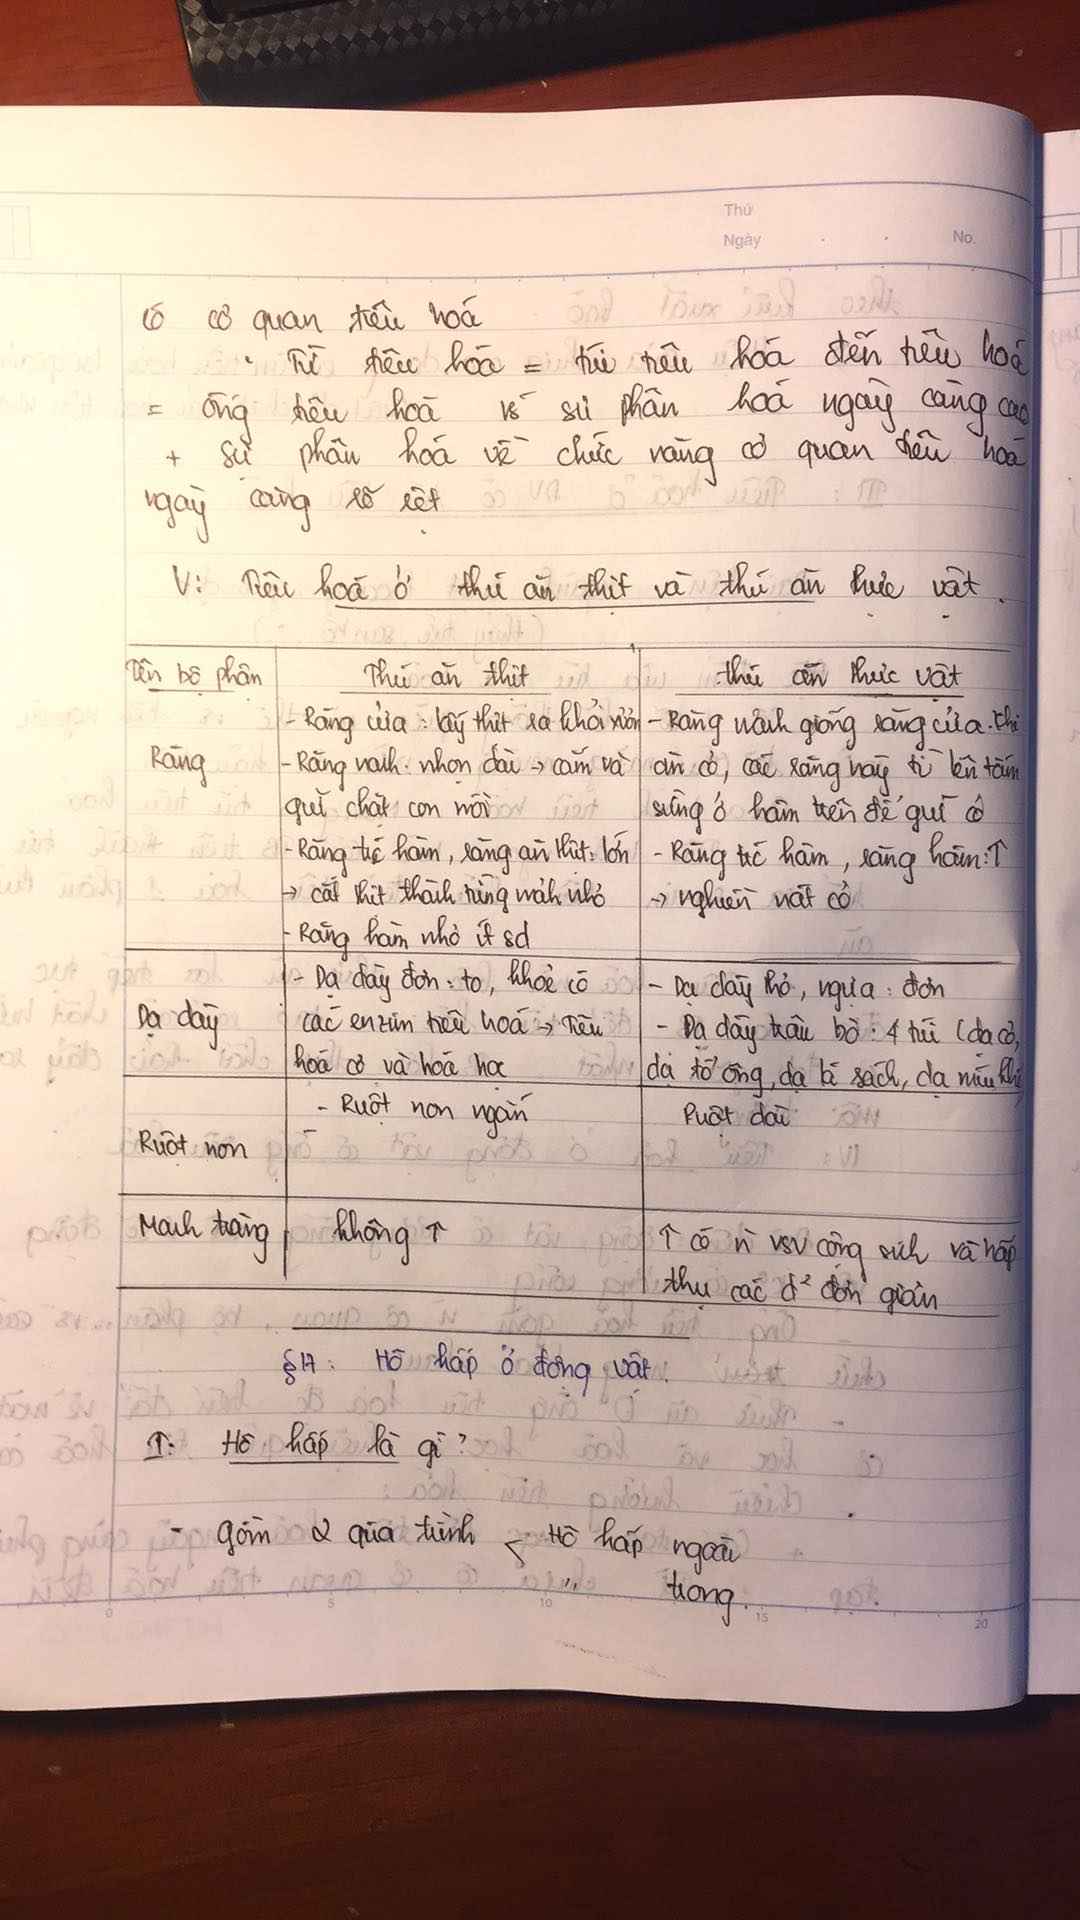 Thứ
Ngày . . No.
có cơ quan tiêu hoá
Từ tiêu hóa = túi tiêu hóa đến tiêu hoá
= ống tiêu hoá vs sự phân hoá ngày càng cao
+ Sự phân hoá về chức năng cơ quan tiêu hoá
ngày càng rõ rệt
V: Tiêu hoá ở thú ăn thịt và thú ăn thực vật.
Tên bộ phận
Thú ăn thịt
thú ăn thực vật
Răng
- Răng cửa: lấy thịt ra khỏi xương
- Răng nanh: nhọn dài → cắm và
giữ chặt con mồi
- Răng trc hàm, răng ăn thịt: lớn
→ cắt thịt thành từng mảnh nhỏ
- Răng hàm nhỏ ít sd
- Răng nanh giống răng cửa. Khi
ăn cỏ, các răng này tì lên tấm
sừng ở hàm trên để giữ cỏ
- Răng trc hàm, răng hàm: ↑
→ nghiền nát cỏ
Dạ dày
- Dạ dày đơn: to, khoẻ có
các enzim tiêu hoá → Tiêu
hoá cơ và hoá học
- Dạ dày thỏ, ngựa: đơn
- Dạ dày trâu bò: 4 túi (dạ cỏ,
dạ tổ ong, dạ lá sách, dạ múi khế
Ruột non
- Ruột non ngắn
-
Ruột dài
Manh tràng
không ↑
↑ có n` VSV cộng sinh và hấp
thụ các d² đơn giản
§17: Hô hấp ở động vật.
I: Hô hấp là gì?
- Gồm 2 quá trình < Hô hấp ngoài
" trong.
0 5 10 15 20